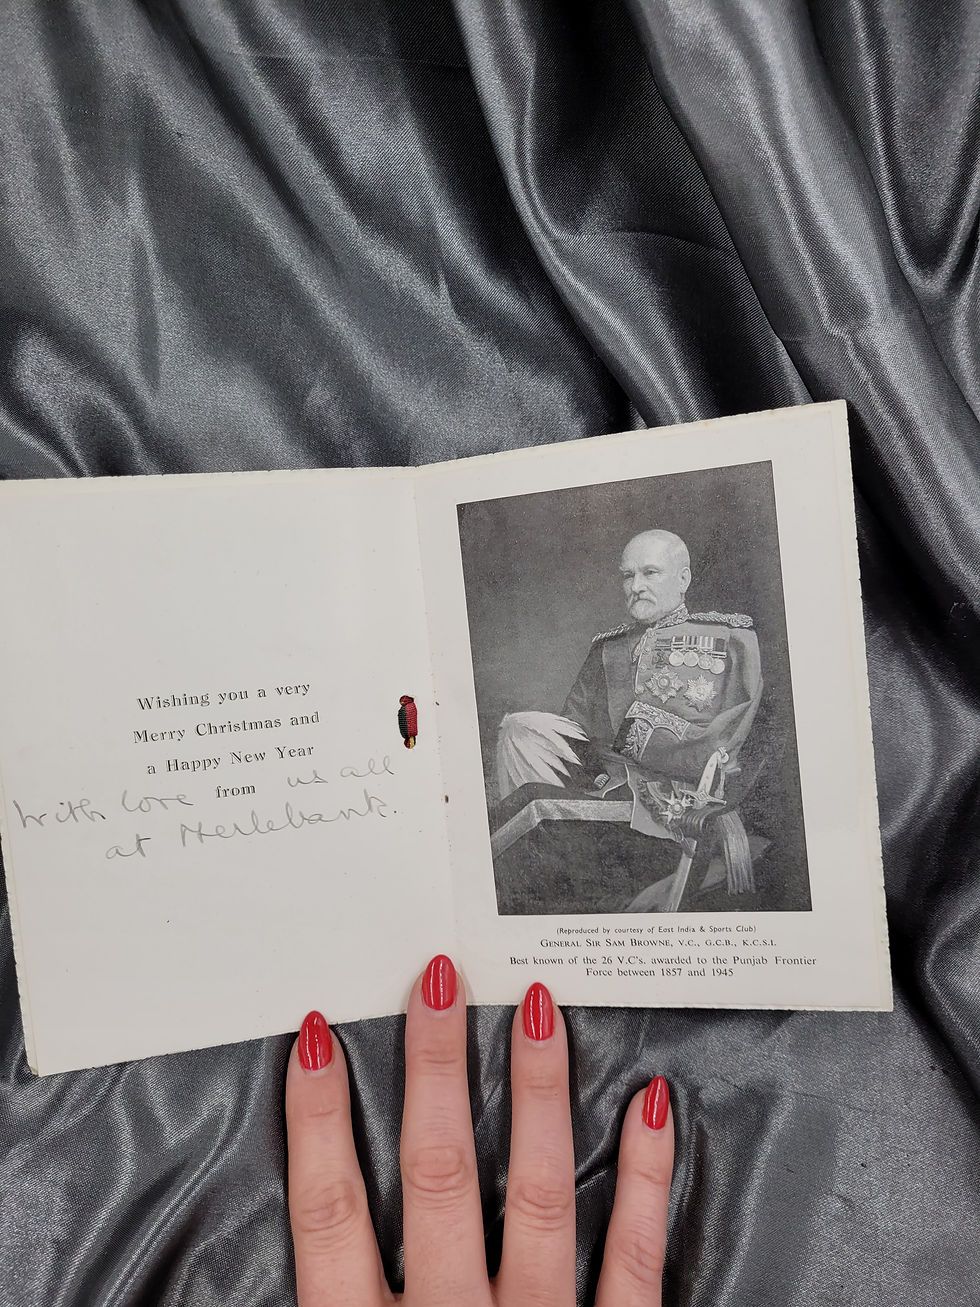 Wishing you a very
Merry Christmas and
a Happy New Year
With love from us all
at Merlebank.
(Reproduced by courtesy of East India & Sports Club)
GENERAL SIR SAM BROWNE, V.C., G.C.B., K.C.S.I.
Best known of the 26 V.C's. awarded to the Punjab Frontier
Force between 1857 and 1945